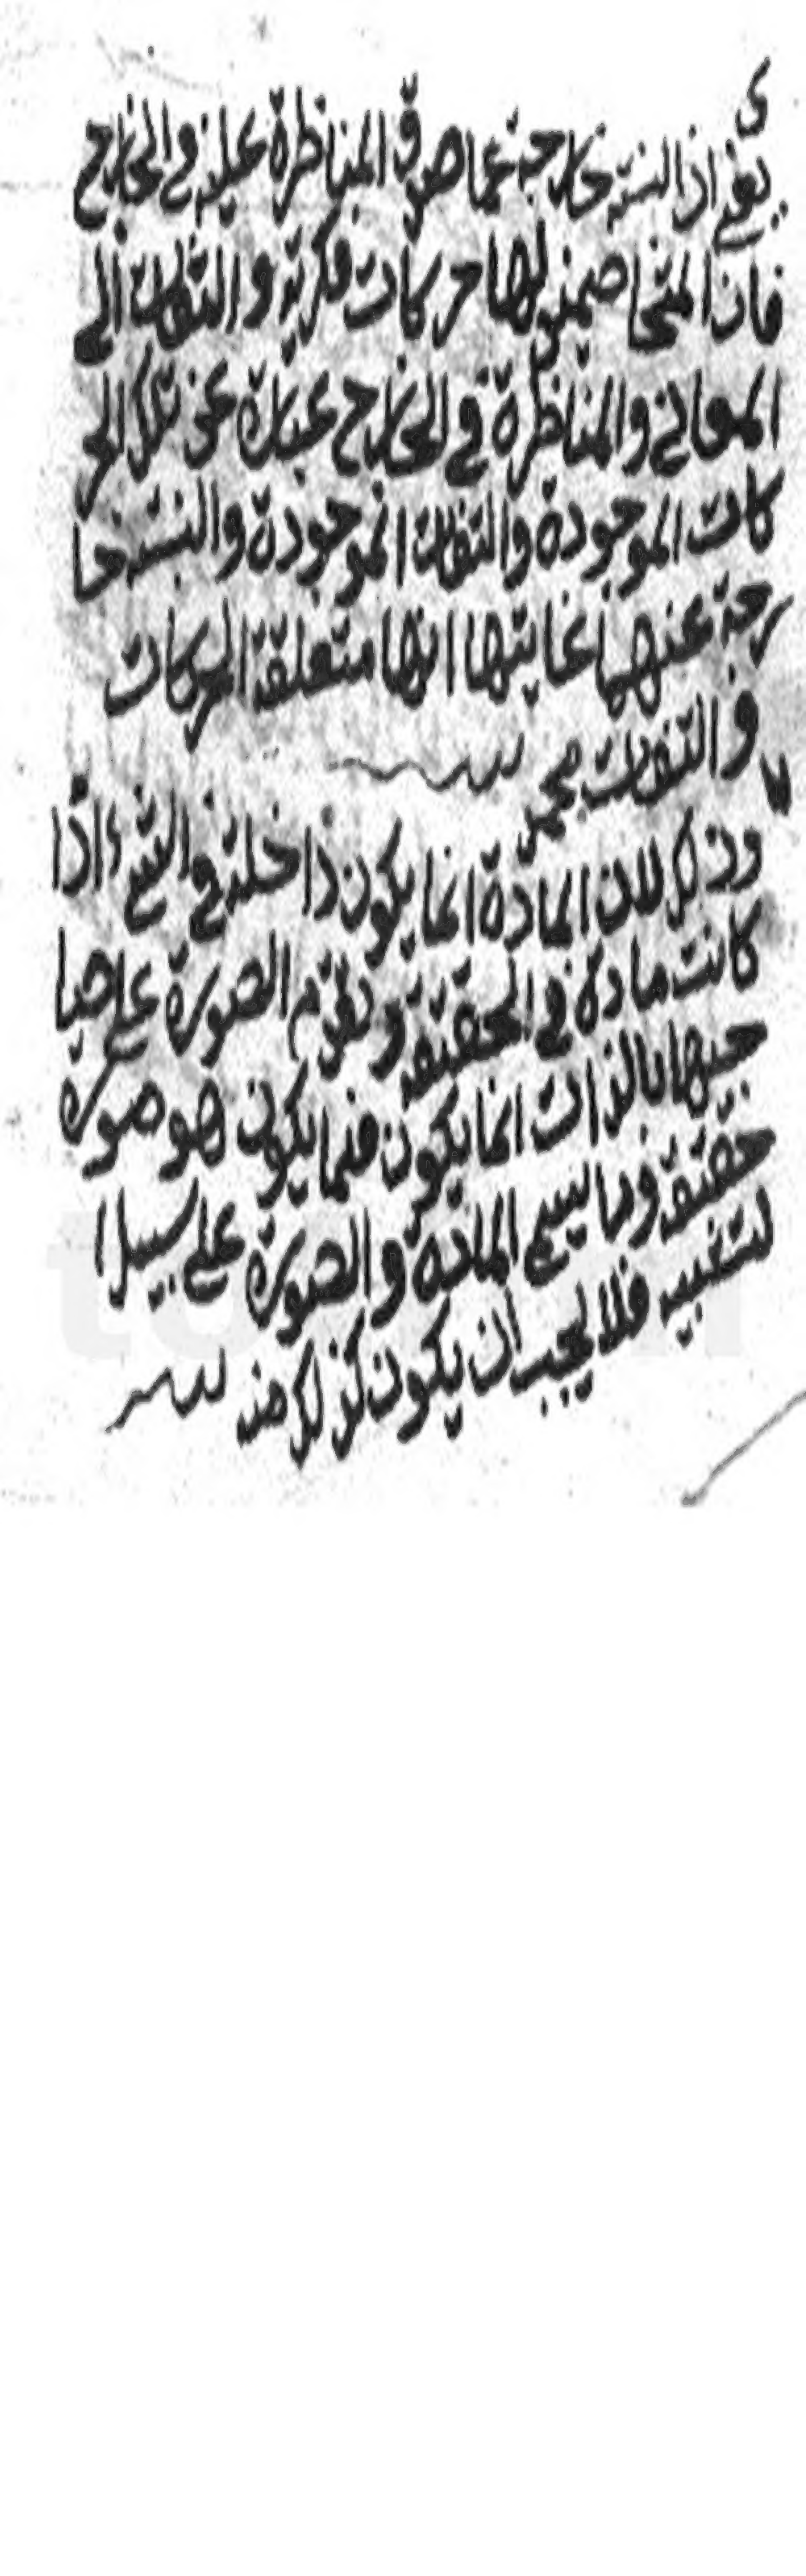 ى
يعني اذ النسبة خارجة عما صدق المناظرة عليه في الخارج
فان المتخاصمين لهما حركات فكرية والتفات الى
المعاني والمناظرة في الخارج عبارة عن تلك الحر
كات الموجودة والتفات الموجودة والنسبة خا
رجة عنهما غايتها انها متعلقة الحركات
والتفات
وذلك لان المادة انما يكون داخلة في الشيء اذا
كانت مادة في الحقيقة وتقدم الصورة على صا
حبها بالذات انما يكون فيما يكون هو صورة
حقيقة وما يسمى المادة والصورة على سبيل ا
لتشبيه فلا يجب ان يكون كذلك